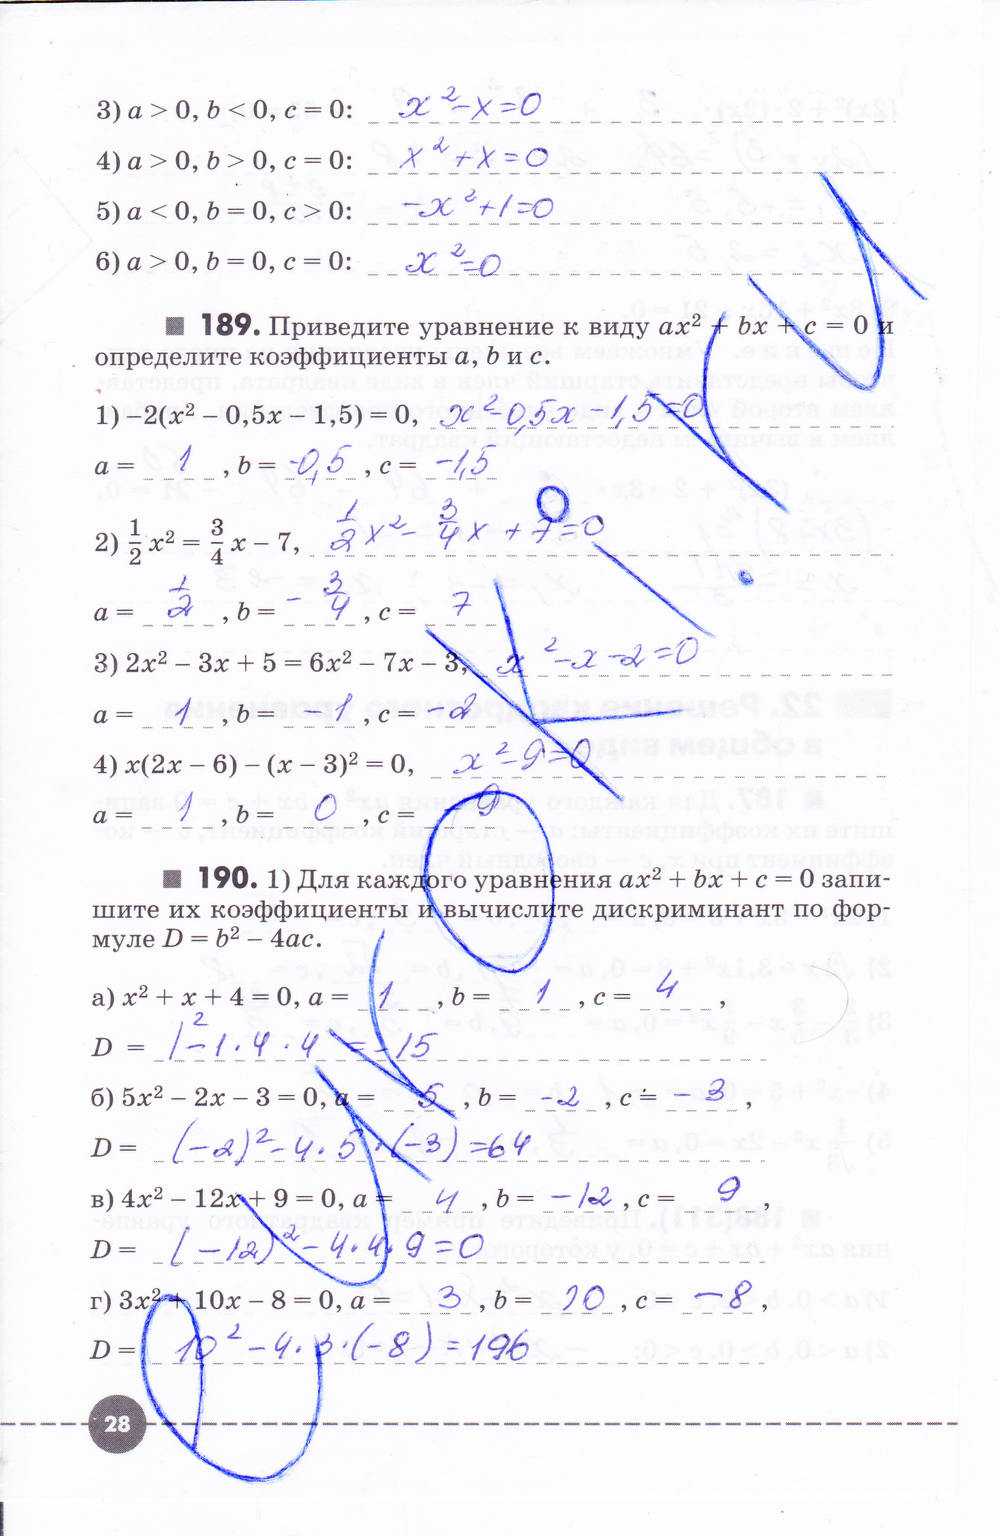 3) a > 0, b < 0, c = 0: x² - x = 0
4) a > 0, b > 0, c = 0: x² + x = 0
5) a < 0, b = 0, c > 0: -x² + 1 = 0
6) a > 0, b = 0, c = 0: x² = 0
189. Приведите уравнение к виду ax² + bx + c = 0 и
определите коэффициенты a, b и c.
1) –2(x² – 0,5x – 1,5) = 0, x² - 0,5x - 1,5 = 0
a = 1, b = -0,5, c = -1,5
2) 1/2 x² = 3/4 x – 7, 1/2 x² - 3/4 x + 7 = 0
a = 1/2, b = - 3/4, c = 7
3) 2x² – 3x + 5 = 6x² – 7x – 3, x² - x - 2 = 0
a = 1, b = -1, c = -2
4) x(2x – 6) – (x – 3)² = 0, x² - 9 = 0
a = 1, b = 0, c = -9
190. 1) Для каждого уравнения ax² + bx + c = 0 запи-
шите их коэффициенты и вычислите дискриминант по фор-
муле D = b² – 4ac.
а) x² + x + 4 = 0, a = 1, b = 1, c = 4,
D = 1² - 1 · 4 · 4 = -15
б) 5x² – 2x – 3 = 0, a = 5, b = -2, c = -3,
D = (-2)² - 4 · 5 · (-3) = 64
в) 4x² – 12x + 9 = 0, a = 4, b = -12, c = 9,
D = (-12)² - 4 · 4 · 9 = 0
г) 3x² + 10x – 8 = 0, a = 3, b = 10, c = -8,
D = 10² - 4 · 3 · (-8) = 196
28